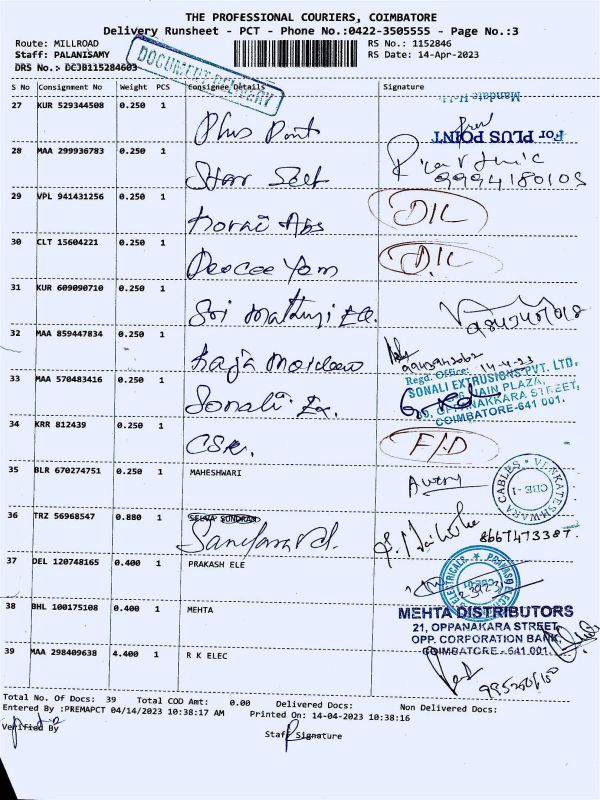 THE PROFESSIONAL COURIERS, COIMBATORE
Delivery Runsheet - PCT - Phone No.:0422-3505555 - Page No.:3
Route: MILLROAD
RS No.: 1152846
Staff: PALANISAMY
RS Date: 14-Apr-2023
DRS No.:- DCJB115284603
DOCUMENT DELIVERY
S No Consignment No Weight PCS Consignee Details Signature
27 KUR 529344508 0.250 1 Plus Point
For PLUS POINT
28 MAA 299936783 0.250 1 Star Selt
9994180105
29 VPL 941431256 0.250 1
D/L
30 CLT 15604221 0.250 1
D/L
31 KUR 609090710 0.250 1 Sri
32 MAA 859447834 0.250 1 Raja
14-4-23
33 MAA 570483416 0.250 1 Sonali Ex.
Regd. Office:
SONALI EXTRUSIONS PVT. LTD.
JAIN PLAZA,
OPPANAKKARA STREET,
COIMBATORE-641 001.
34 KRR 812439 0.250 1 CSR.
F/D
35 BLR 670274751 0.250 1 MAHESHWARI
VENKATESHWARA CABLES
CBE-1
36 TRZ 56968547 0.880 1 SELVA SUNDRAM
8667473387.
37 DEL 120748165 0.400 1 PRAKASH ELE
ELECTRICALS
38 BHL 100175108 0.400 1 MEHTA
MEHTA DISTRIBUTORS
21, OPPANAKARA STREET,
OPP. CORPORATION BANK,
COIMBATORE - 641 001.
39 MAA 298409638 4.400 1 R K ELEC
Total No. Of Docs: 39 Total COD Amt: 0.00 Delivered Docs: Non Delivered Docs:
Entered By :PREMAPCT 04/14/2023 10:38:17 AM Printed On: 14-04-2023 10:38:16
Verified By
Staff Signature